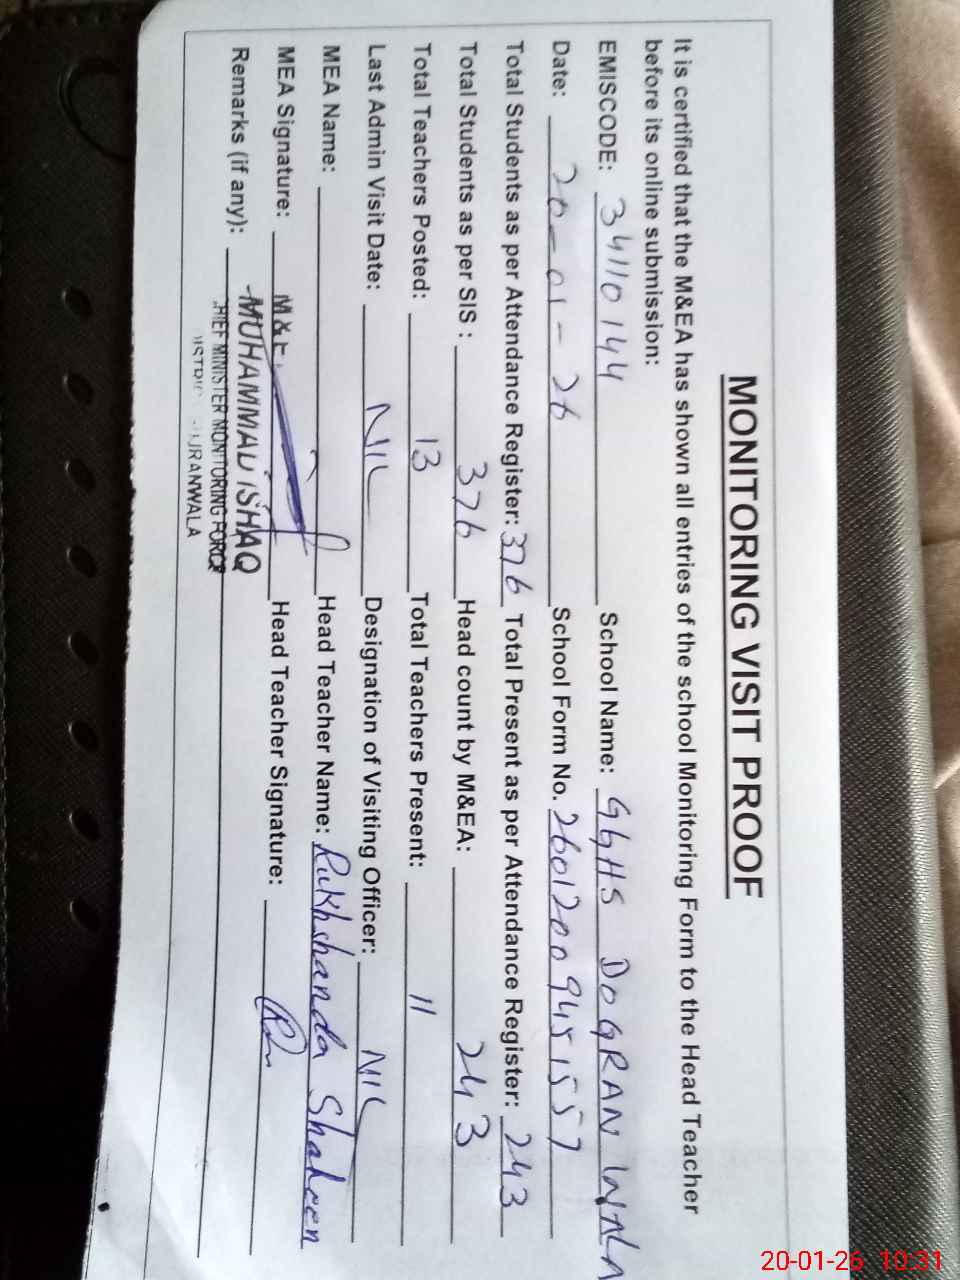 MONITORING VISIT PROOF
It is certified that the M&EA has shown all entries of the school Monitoring Form to the Head Teacher
before its online submission:
EMISCODE: 34110144 School Name: GGHS DOGRAN WALA
Date: 20-01-26 School Form No. 2601200945157
Total Students as per Attendance Register: 376 Total Present as per Attendance Register: 243
Total Students as per SIS : 376 Head count by M&EA: 243
Total Teachers Posted: 13 Total Teachers Present: 11
Last Admin Visit Date: NIL Designation of Visiting Officer: NIL
MEA Name: Head Teacher Name: Rukhshanda Shaheen
MEA Signature: M&E Head Teacher Signature:
Remarks (if any): MUHAMMAD ISHAQ
CHIEF MINISTER MONITORING FORCE
20-01-26 10:31